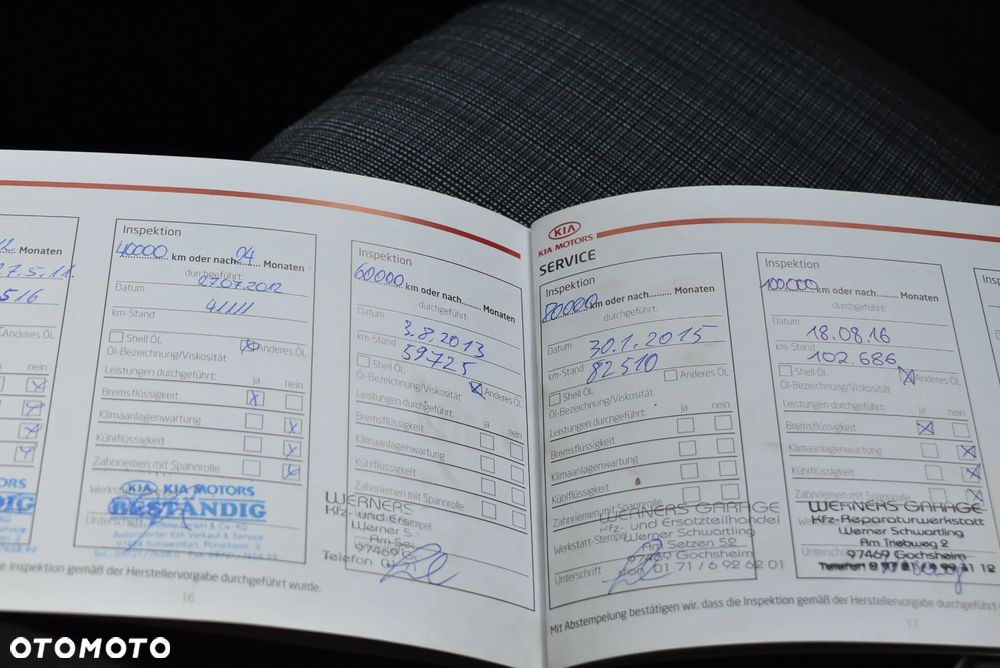 12 Monaten
27.5.11.
516
Anderes ÖL
nein
ORS
DIG
Inspektion
40000 km oder nach 04 Monaten
durchgeführt:
Datum 27.07.2012
km-Stand 41111
Shell ÖL
Anderes ÖL
Öl-Bezeichnung/Viskosität
Leistungen durchgeführt: ja nein
Bremsflüssigkeit X
Klimaanlagenwartung X
Kühlflüssigkeit X
Zahnriemen mit Spannrolle X
KIA KIA MOTORS
BESTÄNDIG
Unterschrift
e Inspektion gemäß der Herstellervorgabe durchgeführt wurde.
16
Inspektion
60000 km oder nach........ Monaten
durchgeführt:
Datum 3.8.2013
km-Stand 59725
Shell ÖL
X Anderes ÖL
Öl-Bezeichnung/Viskosität
Leistungen durchgeführt: ja nein
Bremsflüssigkeit
Klimaanlagenwartung
Kühlflüssigkeit
Zahnriemen mit Spannrolle
WERNERS
Kfz- und Ersa
Werner S
Am Se
97469
Telefon 01 71
KIA
KIA MOTORS
SERVICE
Inspektion
80000 km oder nach........ Monaten
durchgeführt:
Datum 30.1.2015
km-Stand 82510
Shell ÖL
Anderes ÖL
Öl-Bezeichnung/Viskosität
Leistungen durchgeführt: ja nein
Bremsflüssigkeit
Klimaanlagenwartung
Kühlflüssigkeit
Zahnriemen mit Spannrolle
WERNERS GARAGE
Kfz- und Ersatzteilhandel
Werkstatt-Stempel
Werner Schwartling
Am Setzen 52
97469 Gochsheim
Unterschrift
01 71 / 6 92 62 01
Inspektion
100000 km oder nach........ Monaten
durchgeführt:
Datum 18.08.16
km-Stand 102.686
Shell ÖL
X Anderes ÖL
Öl-Bezeichnung/Viskosität
Leistungen durchgeführt: ja nein
Bremsflüssigkeit X
Klimaanlagenwartung X
Kühlflüssigkeit X
Zahnriemen mit Spannrolle X
WERNERS GARAGE
Kfz-Reparaturwerkstatt
Werner Schwartling
Am Triebweg 2
97469 Gochsheim
Mit Abstempelung bestätigen wir, dass die Inspektion gemäß der Herstellervorgabe durchgeführt
17
Inspektion
OTOMOTO